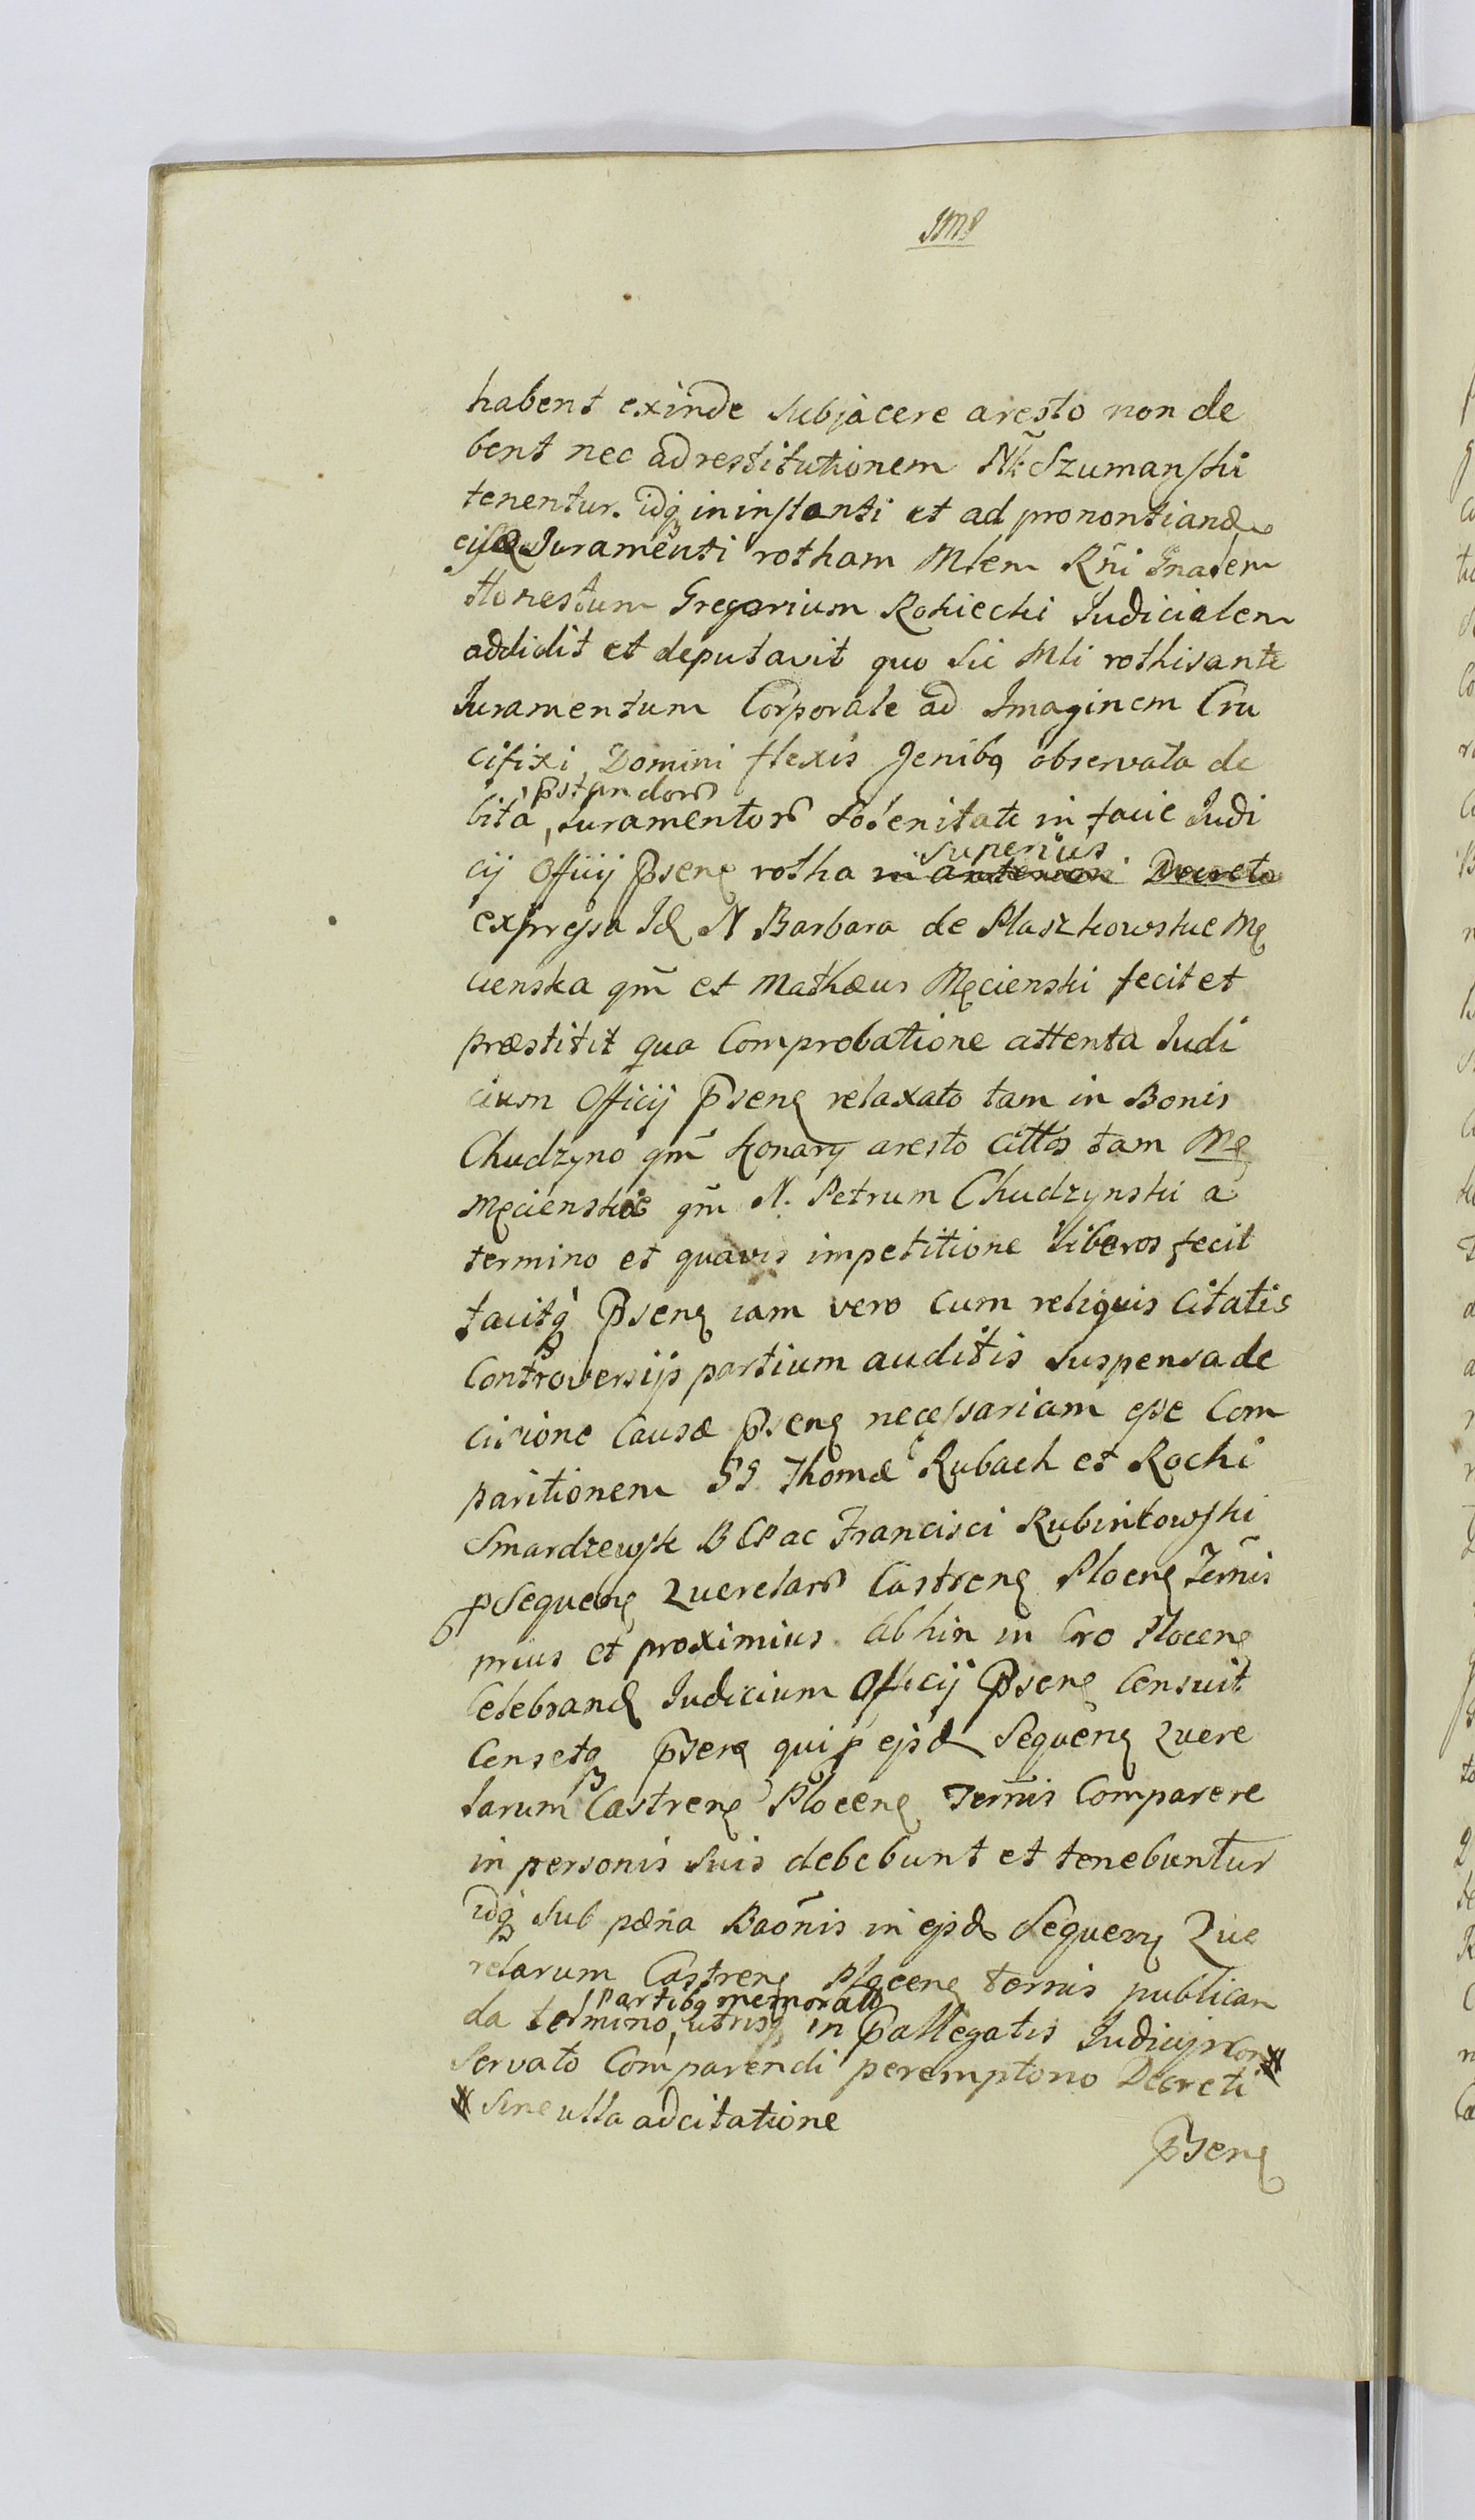 habent exinde subjacere aresto non de
bent nec ad restitutionem Nlis Szumanski
tenentur. idq in instanti et ad pronontiand
ejsd Juramenti rotham Mlem Rñi Gnalem
Honestum Gregorium Rokiecki Judicialem
addidit et deputavit quo sic Mli rothisante
Juramentum Corporale ad Imaginem Cru
cifixi Domini flexis Jenibq observata de
pstandor
bita, Juramentor Solenitate in facie Judi
superius
cij Officij Psenę rotha in anteriori Decreto
expressa Id N Barbara de Plaszkowskie Mę
cienska qm̃ et Mathæus Męcienski fecit et
præstitit qua Comprobatione attenta Judi
cium Officij Psenę relaxato tam in Bonis
Chudzyno qm̃ Konary aresto Cittos tam Mę
Męcienskie qm̃ N. Petrum Chudzynski a
termino et quavis impetitione liberos fecit
facitq Psenę iam vero cum reliquis Citatis
Controversijs partium auditis suspensa de
cisione Causæ Psenę necessariam esse Com
paritionem SS Thomæ Rubach et Rochi
Smardzewsk B CP ac Francisci Rubinkowski
p Sequenę Querelar Castrenę Plocenę Term̃is
prius et proximius abhin in Cro Plocenę
Celebrand Judicium Officij Psenę Censuit
Censetq Psenę qui p ejsd Sequenę Quere
larum Castrenę Plocenę Term̃is Comparere
in personis suis debebunt et tenebuntur
idq sub pæna Baõnis in ejsd Sequenę Que
relarum Castrenę Plocenę termis publican
partibq memorato
da termino, utrisq in Pallegatis Judicijs con
servato Comparendi peremptorio Decreti
sine ulla adcitatione
Psenę